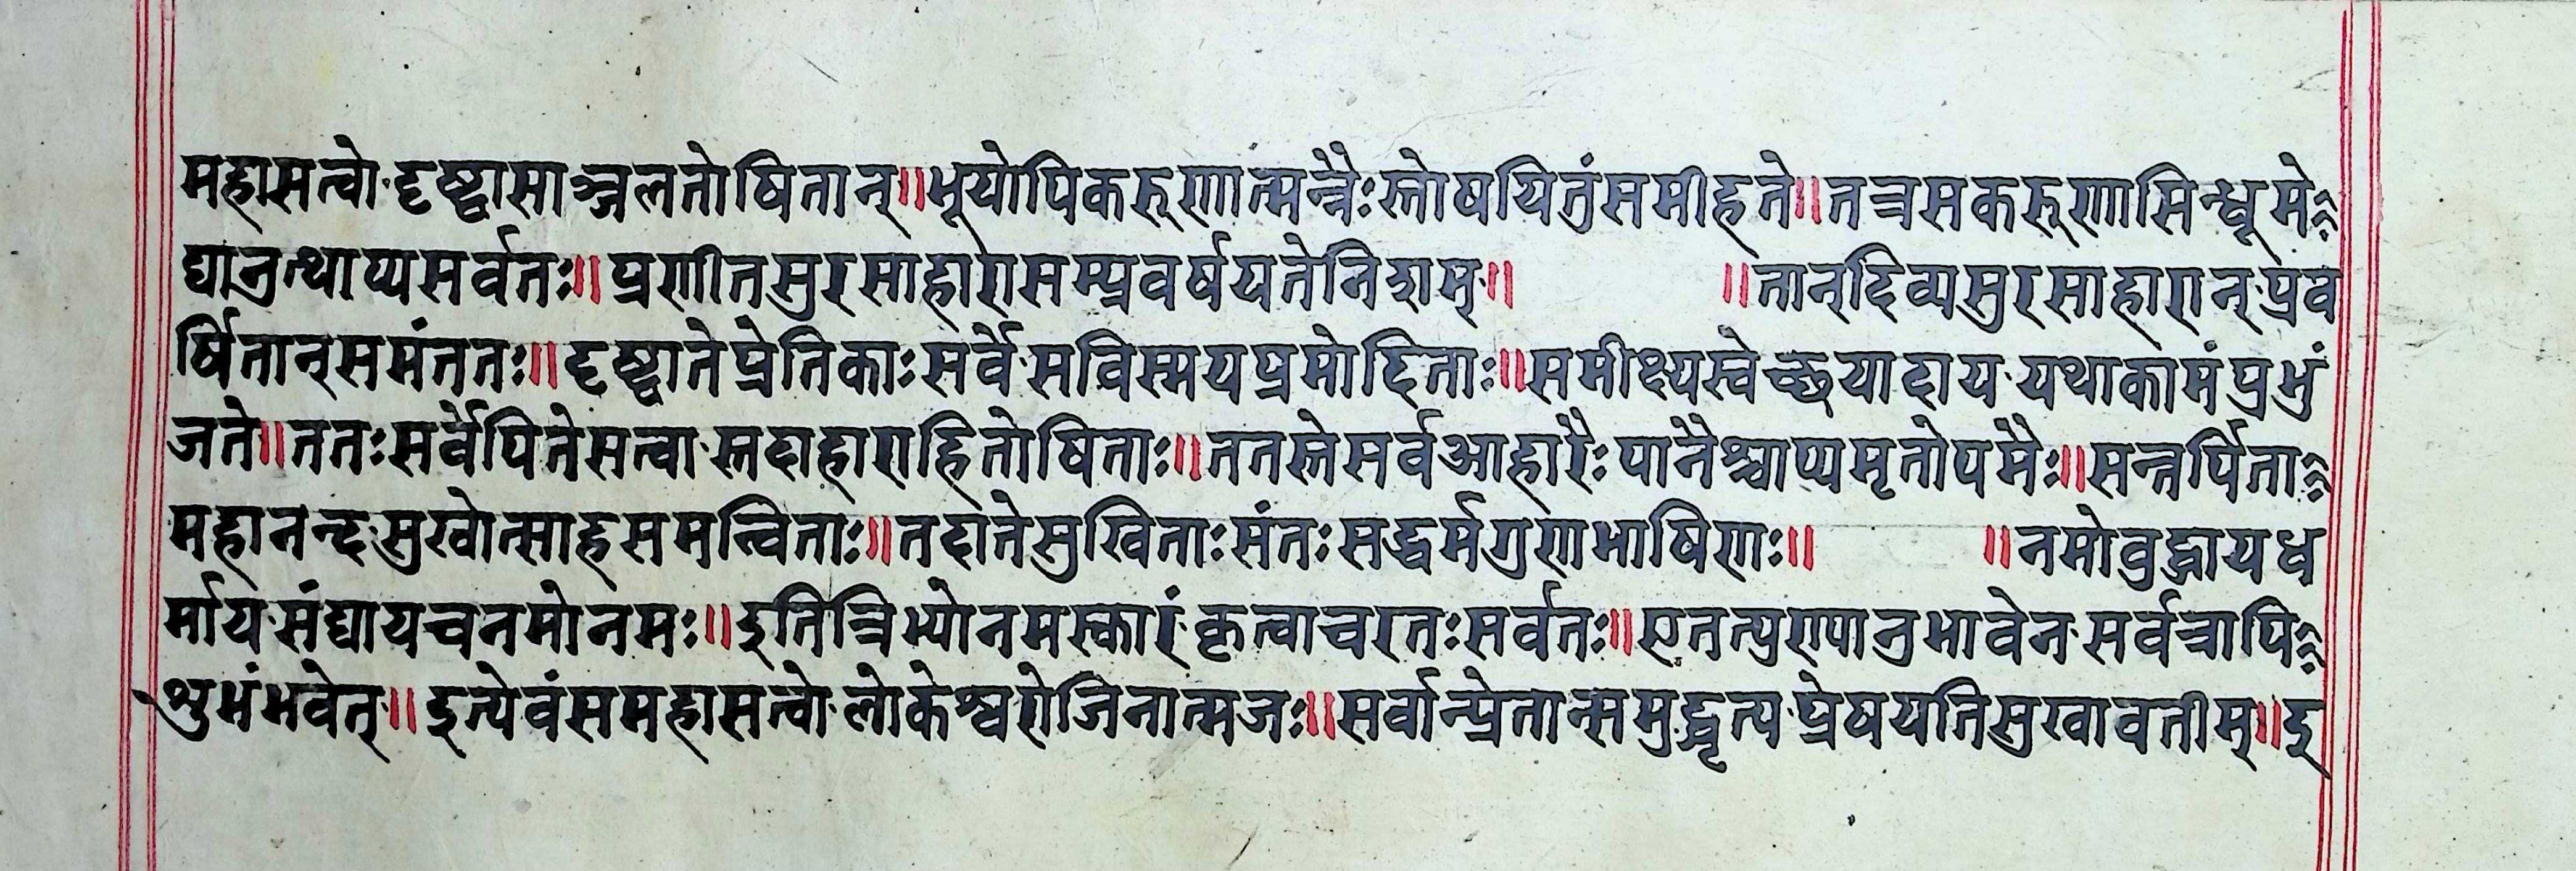 महासत्वो दृष्ट्वासाञ्जलतोषितान्॥भूयोपिकरुणात्मन्नैःस्तोषयितुंसमीहते॥तत्रसकरुणासिन्धूमे
द्यानुत्थाप्यसर्वतः॥प्रणीतसुरसाहारासम्प्रवर्षयतेनिशम्॥ ॥तान्दिव्यसुरसाहारान्प्रव
र्षितान्समंततः॥दृष्ट्वातेप्रेतिकाःसर्वे सविस्मयप्रमोदिताः॥समीक्ष्यस्वेच्छयादाय यथाकामंप्रभुं
जते॥ततःसर्वेपितेसत्वा स्तदाहाराहितोषिताः॥ततस्तेसर्वआहारैःपानैश्चाप्यमृतोपमैः॥सन्तर्पिता
महानन्द सुखोत्साहसमन्विताः॥तदातेसुखिताःसंतःसद्धर्मगुणभाषिणः॥ ॥नमोबुद्धायध
र्माय संघायचनमोनमः॥इतित्रिभ्योनमस्कारं कृत्वाचरतःसर्वतः॥एतत्पुण्यानुभावेन सर्वत्रापि
शुभंभवेत्॥इत्येवंसमहासत्वो लोकेश्वरोजिनात्मजः॥सर्वान्प्रेतान्समुद्धृत्य प्रेषयतिसुखावतीम्॥इ